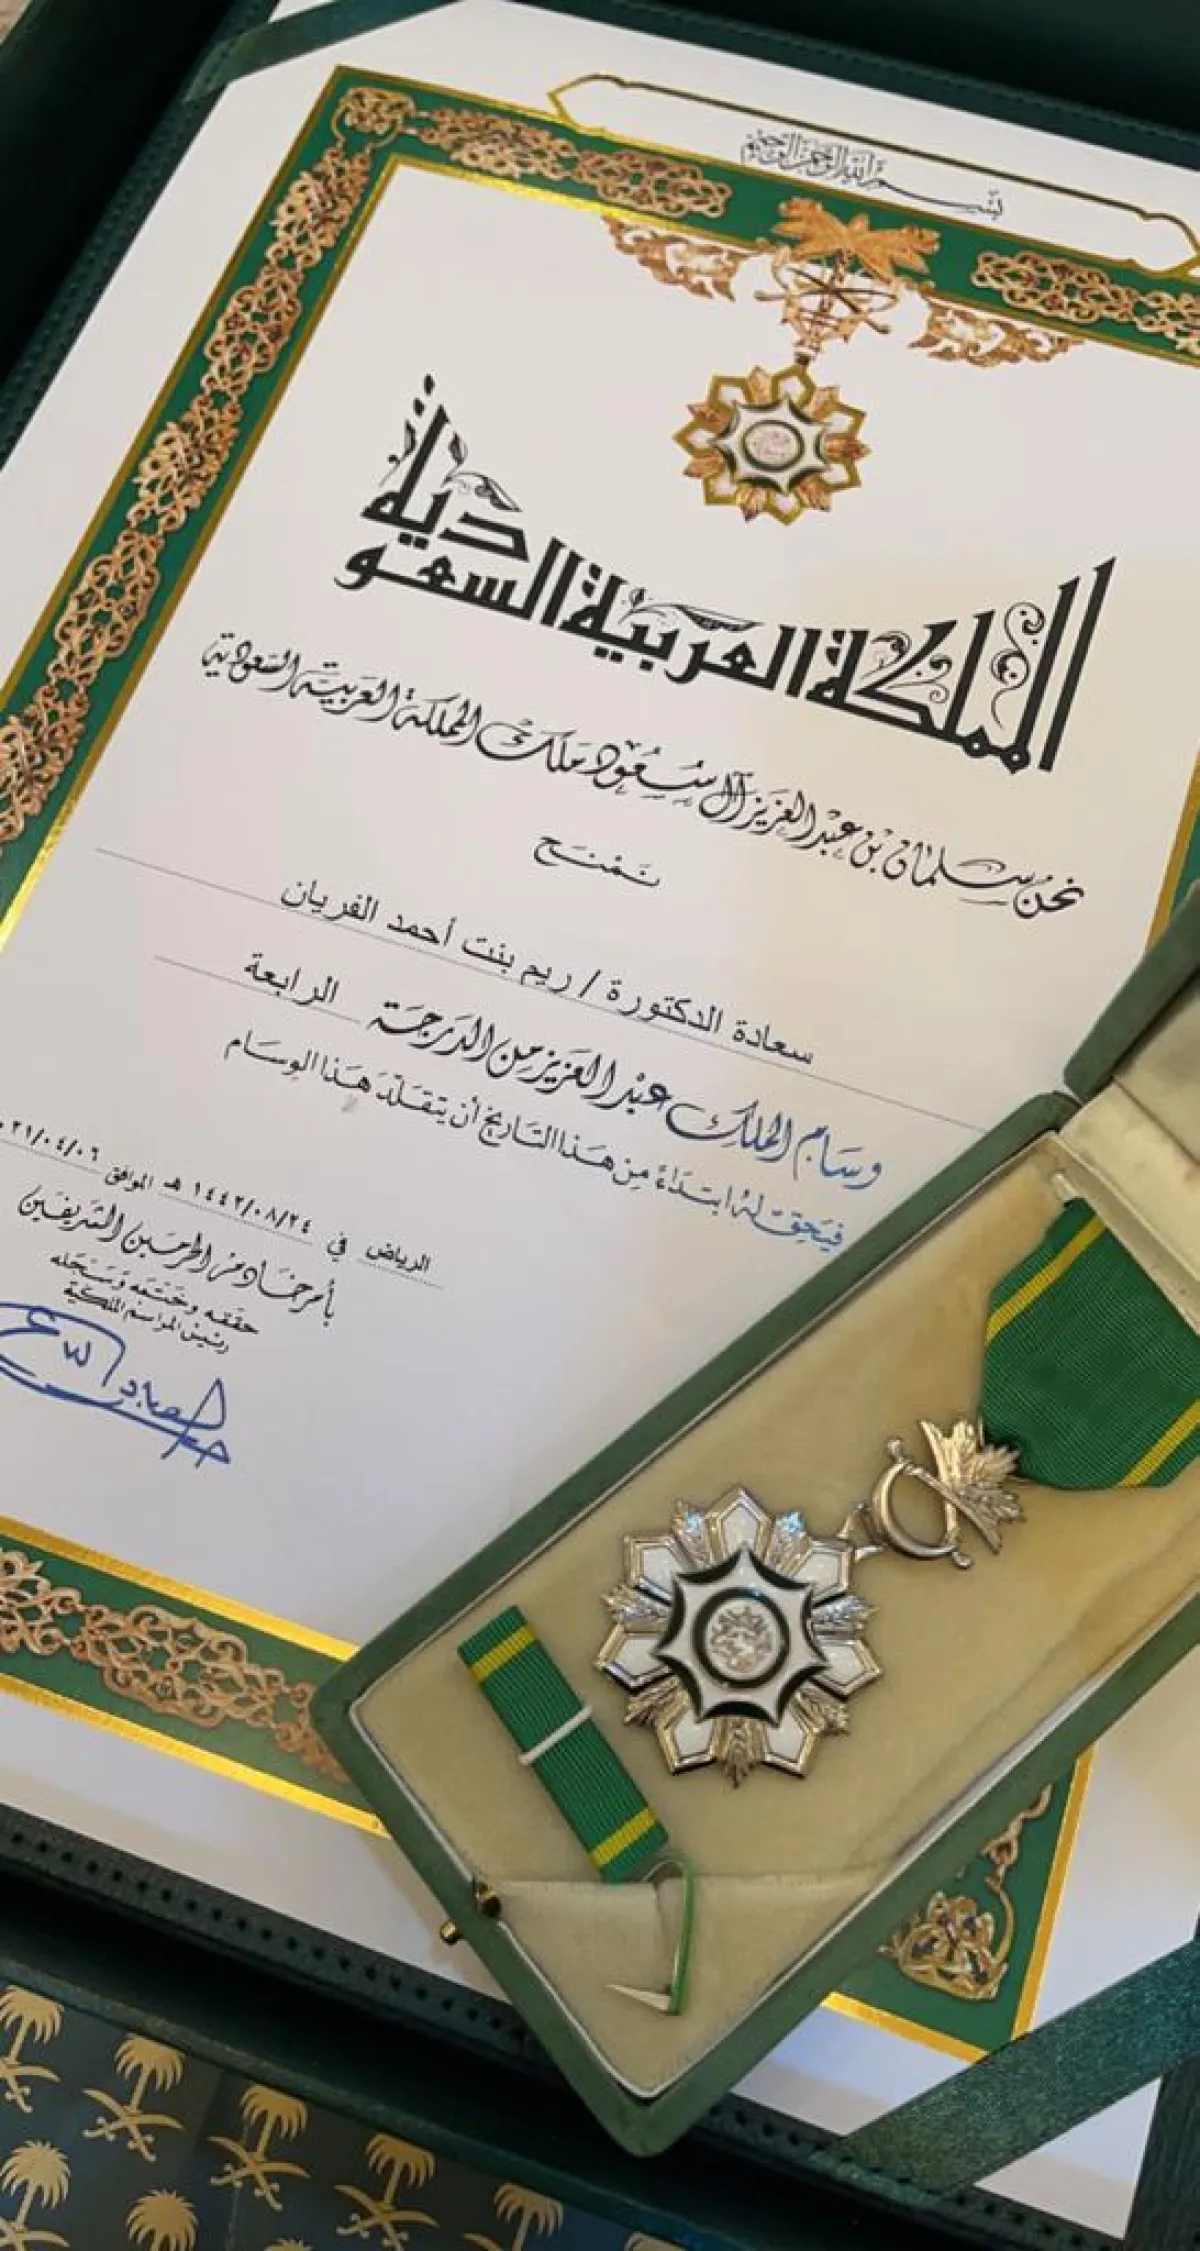 بسم الله الرحمن الرحيم
المملكة العربية السعودية
نحن سلمان بن عبدالعزيز آل سعود ملك المملكة العربية السعودية
نمنح
سعادة الدكتورة / ريم بنت أحمد الفريان
وسام الملك عبدالعزيز من الدرجة الرابعة
فيحق له ابتداءً من هذا التاريخ أن يتقلد هذا الوسام
الرياض في ١٤٤٢/٠٨/٢٤ هـ الموافق ٢١/٠٤/٠٦
بأمر خادم الحرمين الشريفين
حققه وختمه وسجله
رئيس المراسم الملكية